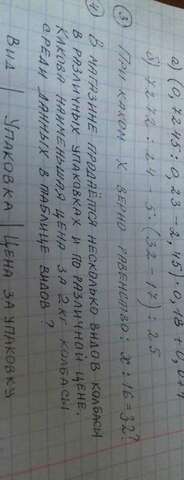 а) (0,7245 : 0,23 - 2,45) · 0,18 + 0,
б) 7272 : 24 - 5 · (32 - 17) : 25
③ При каком х верно равенство: х : 16 = 32?
④ В магазине продаётся несколько видов колбасы
в различных упаковках и по различной цене.
Какова наименьшая цена за 2 кг колбасы
среди данных в таблице видов?
Вид | Упаковка | Цена за упаковку